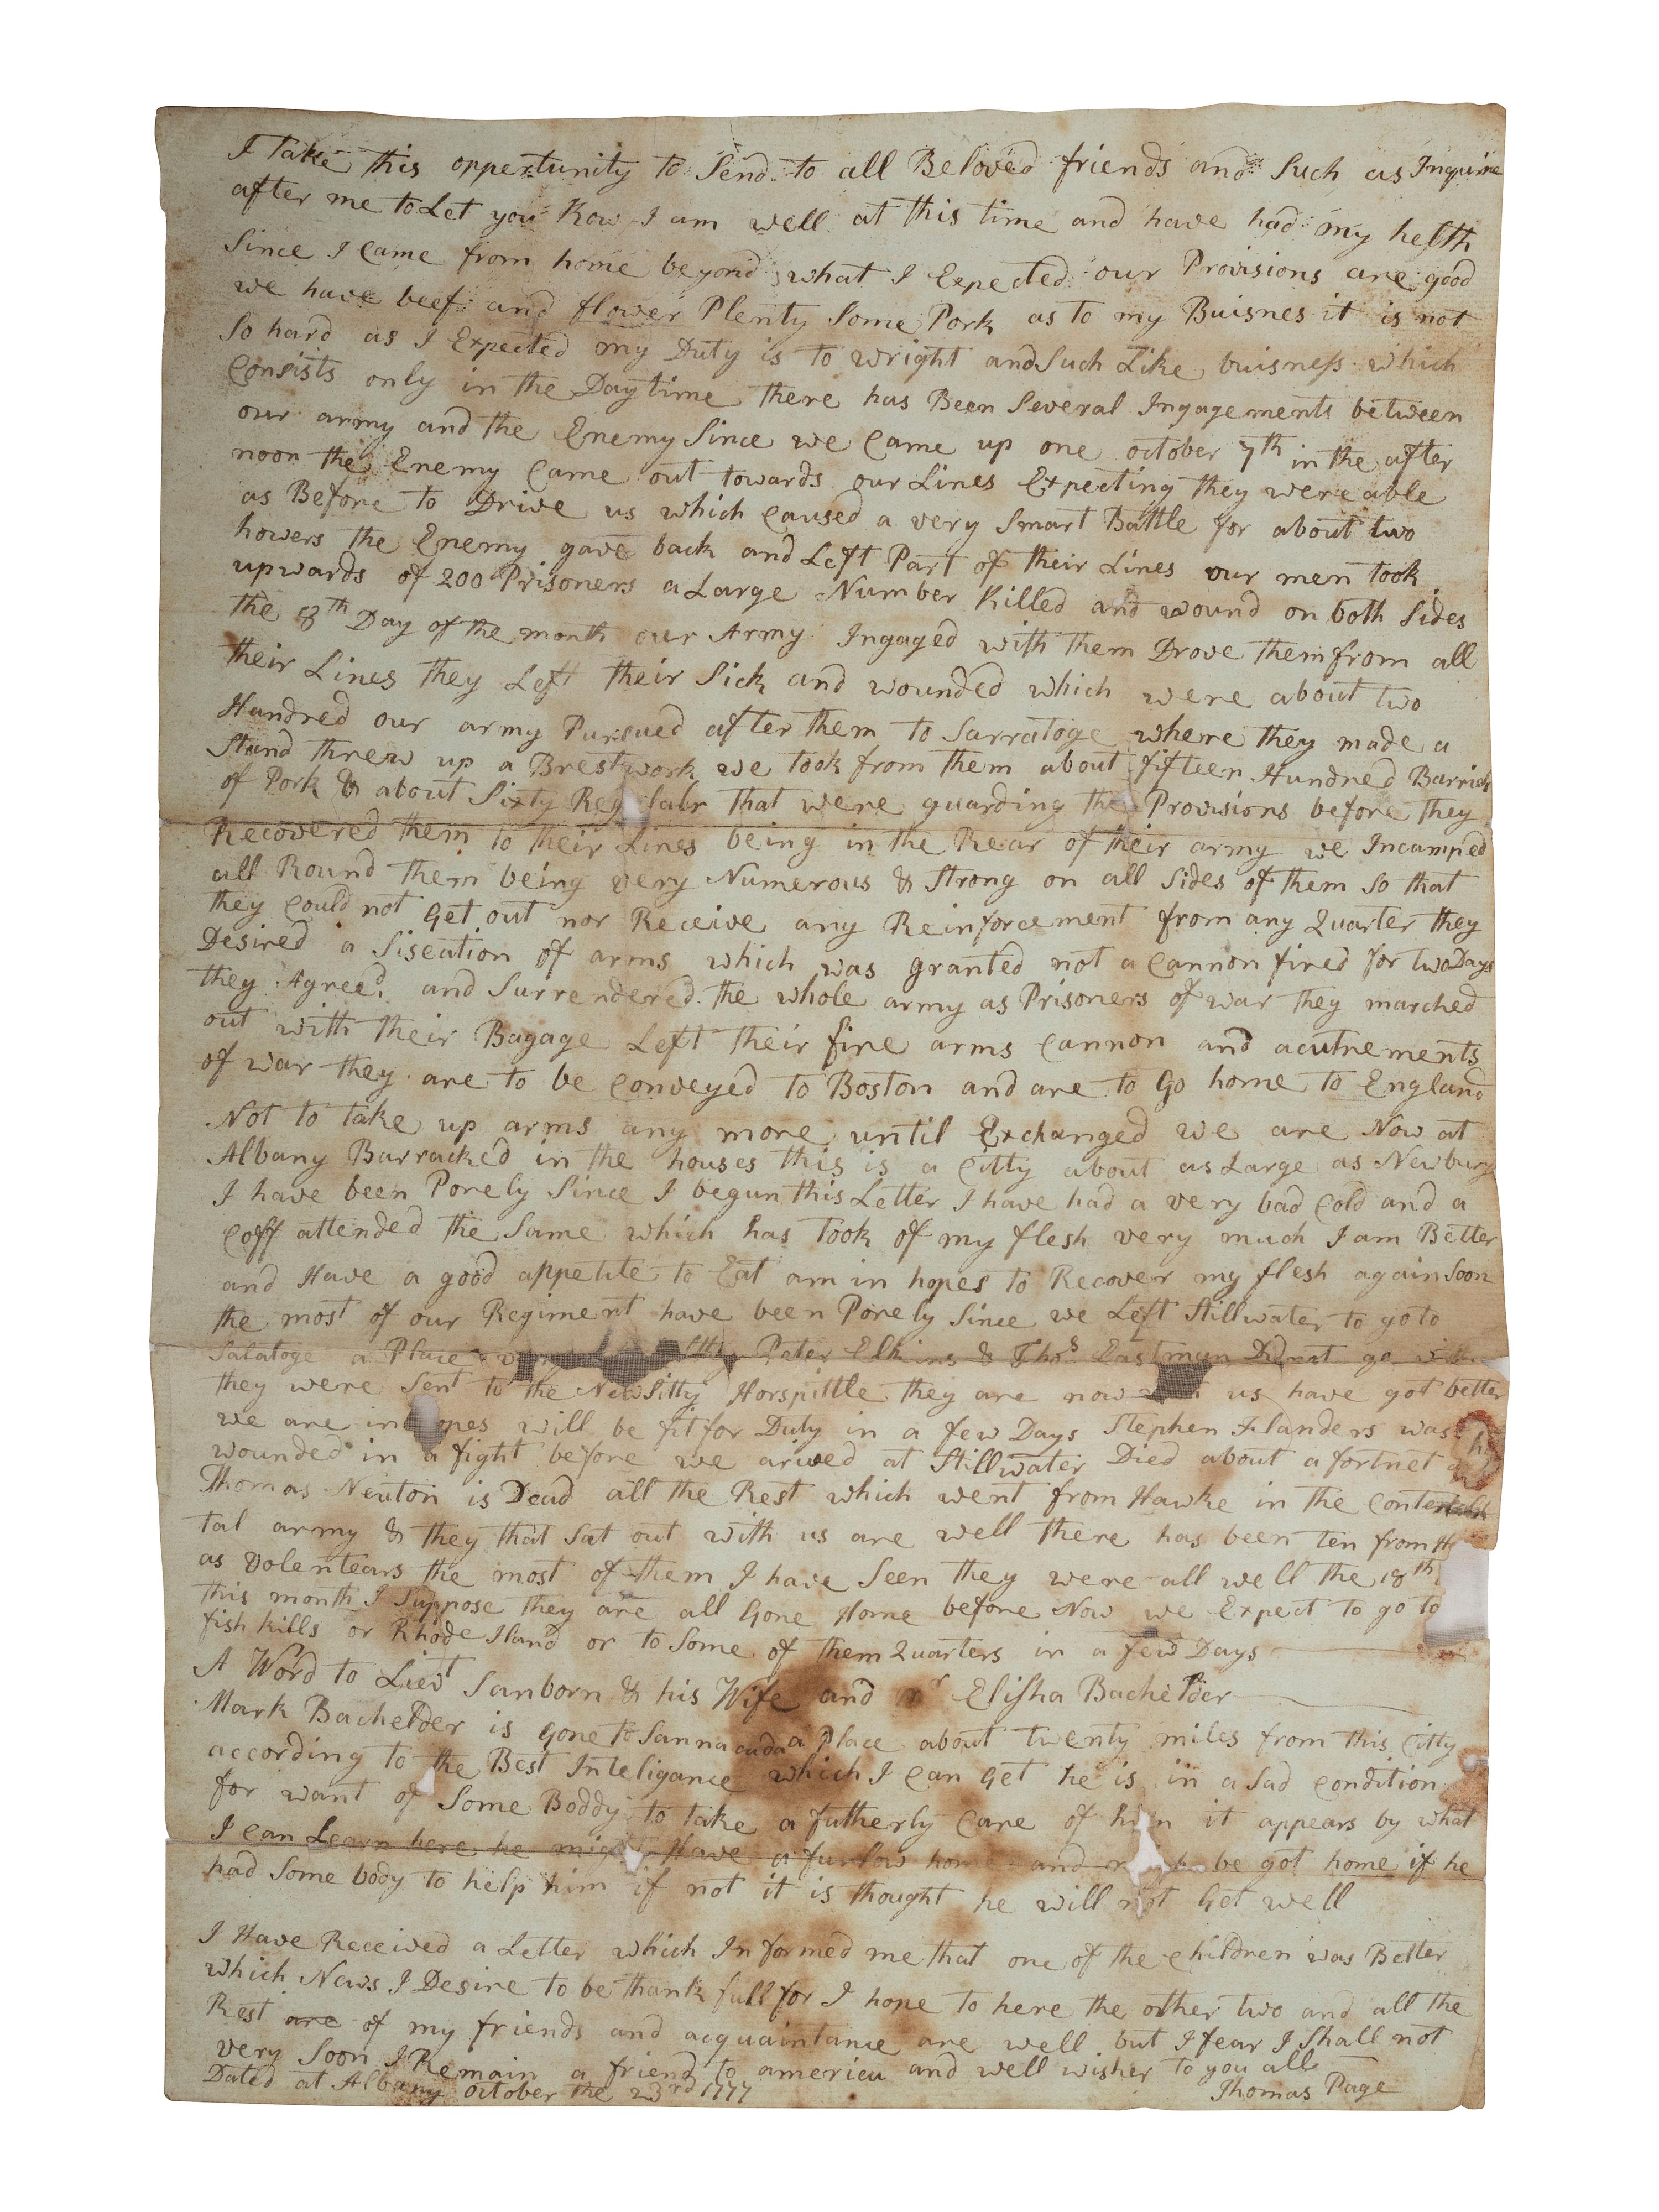 I Take this oppertunity to Send to all Beloved friends and Such as Inquire
after me to Let you Kow I am well at this time and have had my helth
Since I Came from home beyond what I Expected our Provisions are good
we have beef and flower Plenty Some Pork as to my Buisnes it is not
So hard as I Expected my Duty is to wright and Such Like buisness which
Consists only in the Daytime there has Been Several Ingagements between
our army and the Enemy Since we Came up one october 7th in the after
noon the Enemy Came out towards our Lines Expecting they were able
as Before to Drive us which Caused a very Smart Battle for about two
howers the Enemy gave back and Left Part of their Lines our men took
upwards of 200 Prisoners a Large Number Killed and wound on both Sides
the 8th Day of the month our Army Ingaged with them Drove them from all
their Lines they Left their Sick and wounded which were about two
Hundred our army Pursued after them to Sarratoge where they made a
Stand threw up a Brestwork we took from them about fifteen Hundred Barriels
of Pork & about Sixty Regulalr that were guarding the Provisions before they
Recovered them to their Lines being in the Rear of their army we Incamped
all Round them being very Numerous & Strong on all Sides of them So that
they Could not Get out nor Receive any Reinforcement from any Quarter they
Desired a Siseation of arms which was granted not a Cannon fired for two Days
they Agreed and Surrendered the whole army as Prisoners of war they marched
out with their Bagage Left their fire arms Cannon and acutrements
of war they are to be Conveyed to Boston and are to Go home to England
Not to take up arms any more until Exchanged we are Now at
Albany Barracked in the houses this is a Citty about as Large as Newbury
I have been Porely Since I begun this Letter I have had a very bad Cold and a
Coff attended the Same which has took of my flesh very much I am Better
and Have a good appetite to Eat am in hopes to Recover my flesh again Soon
the most of our Regiment have been Porely Since we Left Stillwater to go to
Salatoge a Place Peter Elkins & Thos Eastman Did not go
they were Sent to the New Sitty Horspittle they are now us have got better
we are in hopes will be fit for Duty in a few Days Stephen Flanders was
wounded in a fight before we arived at Stillwater Died about a fortnet
Thomas Newton is Dead all the Rest which went from Hawke in the
tal army & they that Sat out with us are well there has been ten from
as volentears the most of them I have Seen they were all well the 18th
this month I Suppose they are all Gone Home before Now we Expect to go to
fish kills or Rhode Iland or to Some of them Quarters in a few Days
A Word to Lievt Sanborn & his Wife and Elisha Bachelder
Mark Bachelder is gone to Sannacada a Place about twenty miles from this Citty
according to the Best Inteligance which I Can Get he is in a Sad Condition
for want of Some Boddy to take a futherly Care of him it appears by what
I Can Learn here he might Have a furlow home and be got home if he
had Some body to help him if not it is thought he will not Get well
I Have Received a Letter which Informed me that one of the Children was Better
which News I Desire to be thankfull for I hope to here the other two and all the
Rest are of my friends and acquaintance are well but I fear I Shall not
very Soon I Remain a friend to america and well wisher to you all
Dated at Albany october the 23rd 1777 Thomas Page